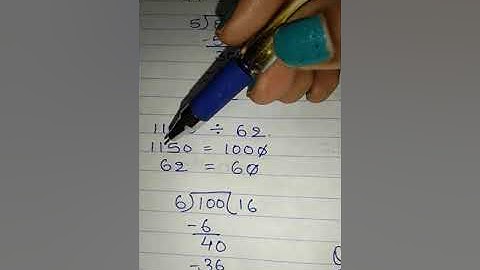 5)
÷ 62.
1150 = 1000
62 = 60
6)100(16
-6
40
-36